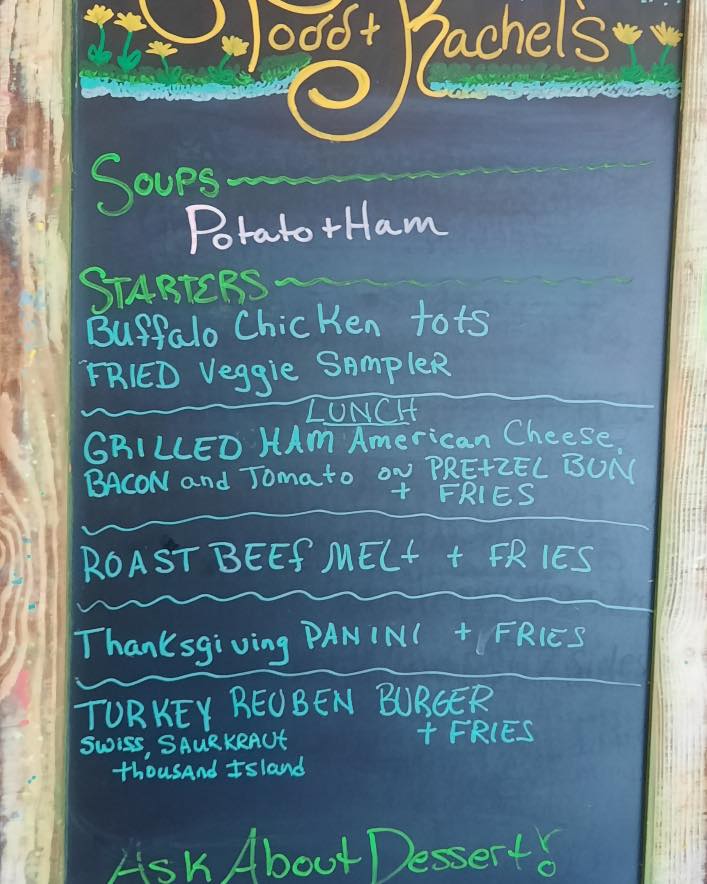 Todd + Rachel's
SOUPS
Potato + Ham
STARTERS
Buffalo Chicken tots
FRIED Veggie SAMPLER
LUNCH
GRILLED HAM American Cheese,
BACON and Tomato on PRETZEL BUN
+ FRIES
ROAST BEEF MELT + FRIES
Thanksgiving PANINI + FRIES
TURKEY REUBEN BURGER
+ FRIES
SWISS, SAURKRAUT
thousand Island
Ask About Dessert!